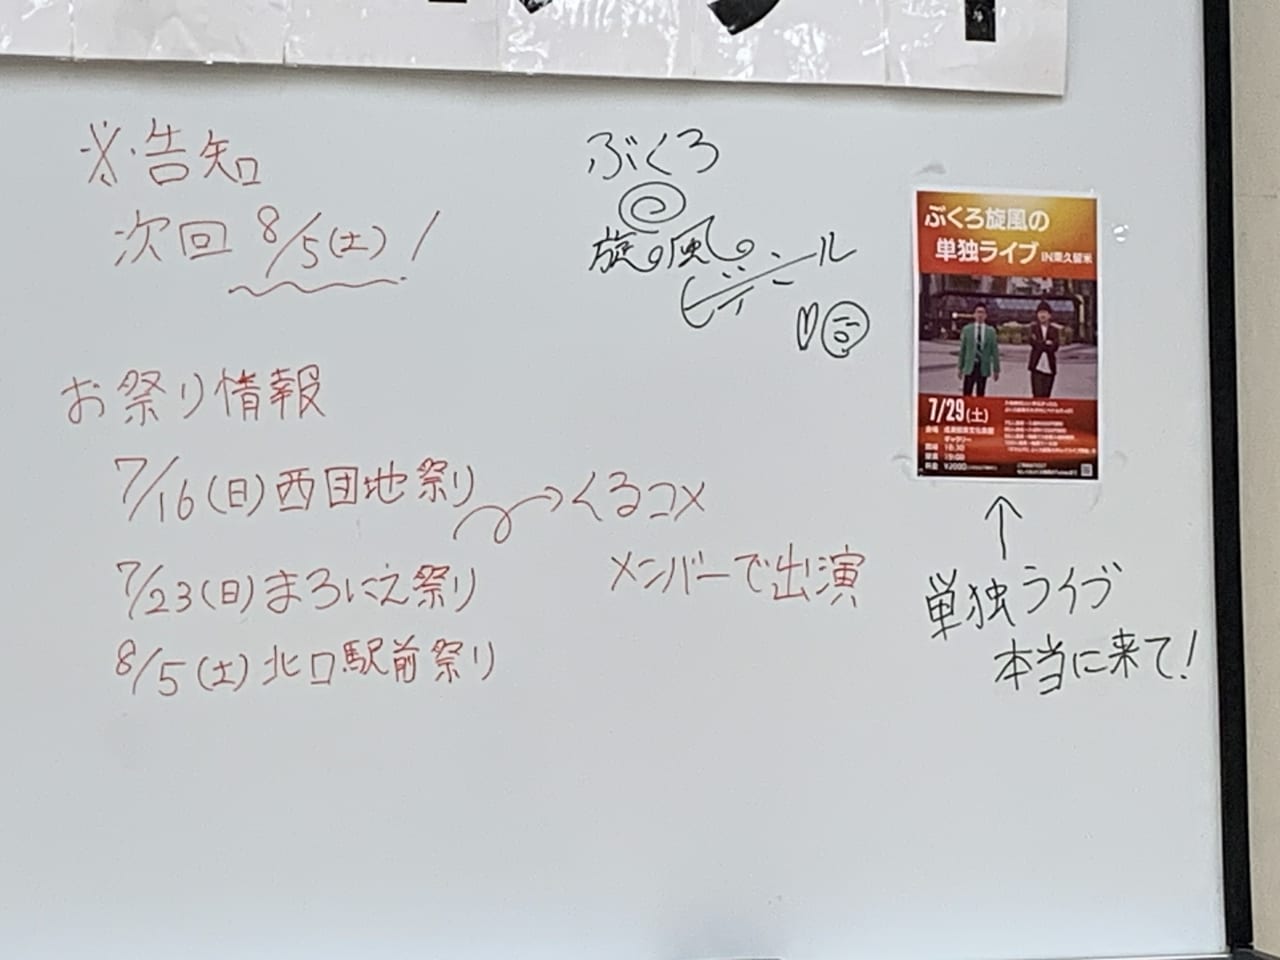 ※告知
次回 8/5(土)!
お祭り情報
7/16(日)西団地祭り
7/23(日)まろにえ祭り
8/5(土)北口駅前祭り
くるコメ
メンバーで出演
ぶくろ
旋風
ビール
ぶくろ旋風の
単独ライブIN東久留米
7/29(土)
ギャラリー
¥2000
単独ライブ
本当に来て!